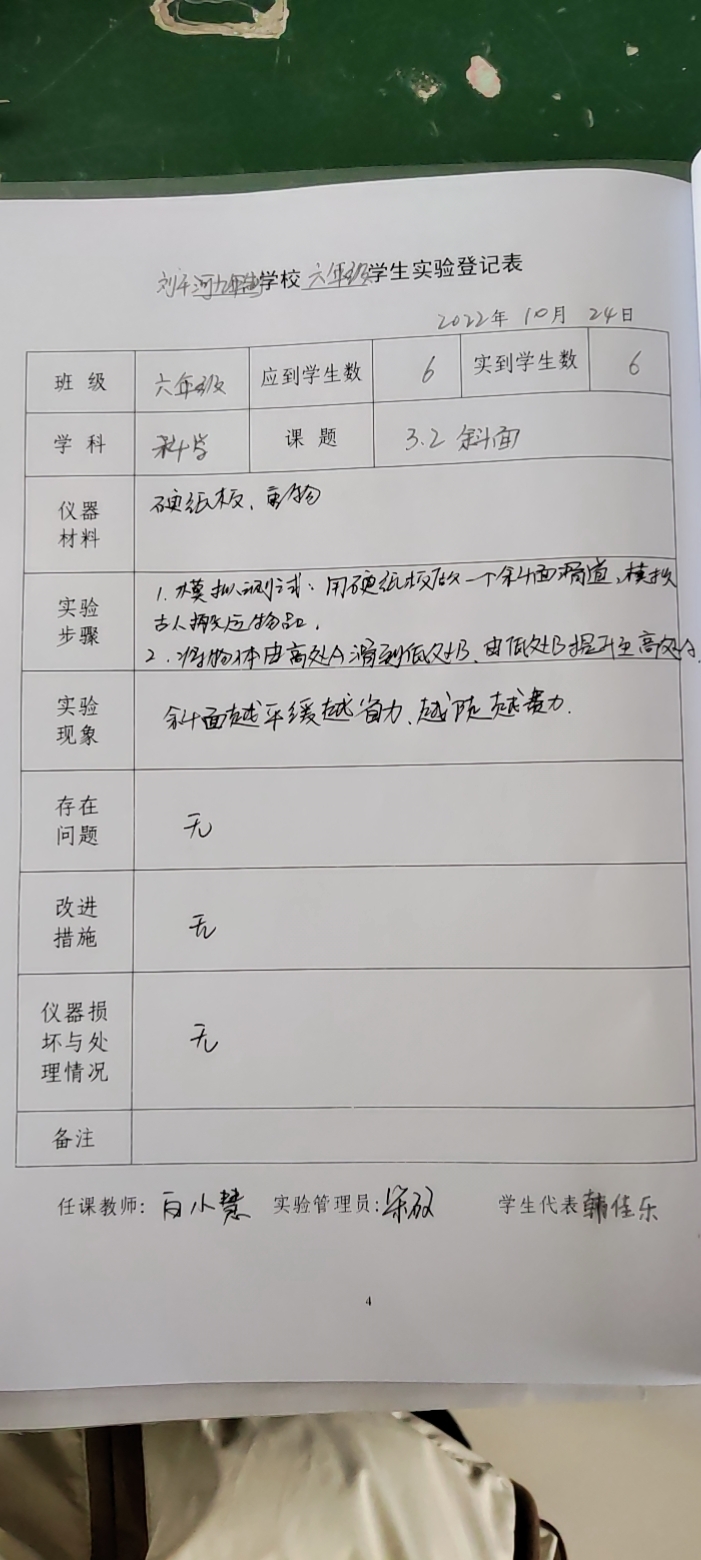 刘平河九年制学校 六年级学生实验登记表
2022年 10月 24日
班 级 六年级 应到学生数 6 实到学生数 6
学 科 科学 课 题 3.2 斜面
仪器材料 硬纸板、重物
实验步骤 1.模拟测试:用硬纸板做一个斜面滑道,模拟
古人搬运物品.
2.将物体由高处A滑到低处B、由低处B提升至高处A.
实验现象 斜面越平缓越省力、越陡越费力.
存在问题 无
改进措施 无
仪器损坏与处理情况 无
备注
任课教师: 白小慧 实验管理员: 学生代表 韩佳乐
4